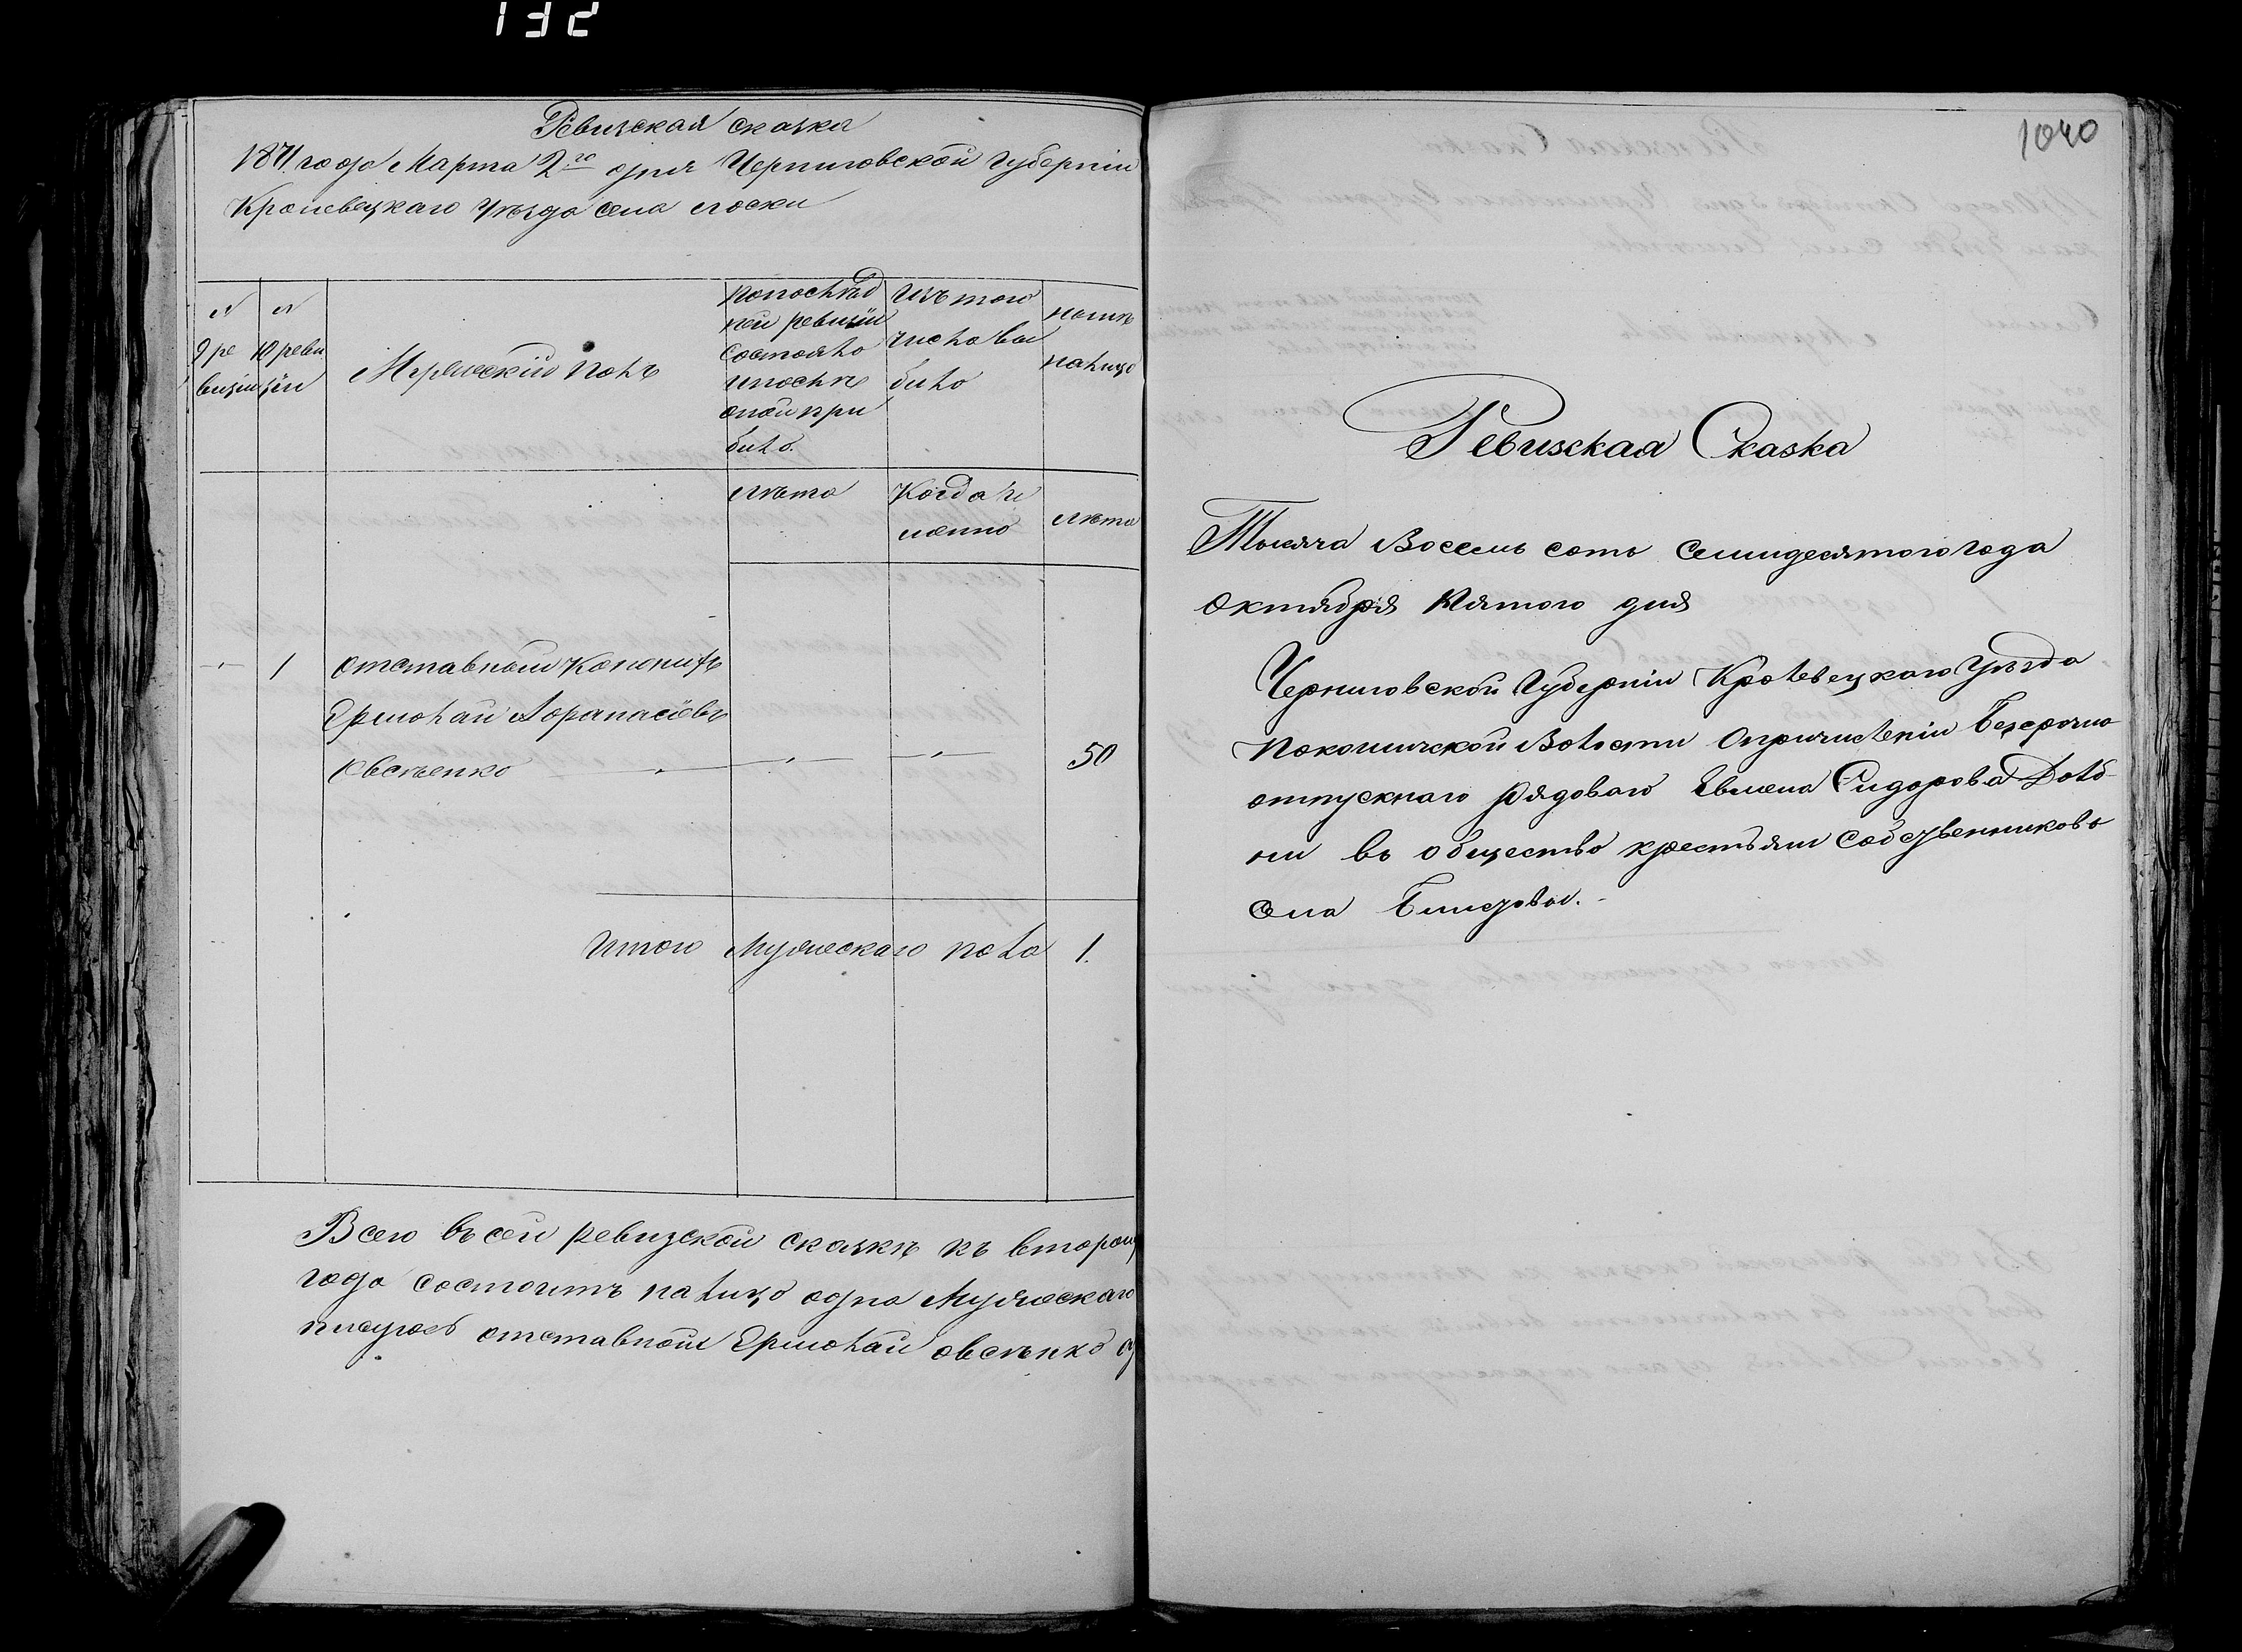 132
Ревизская сказка
1871 года Марта 2го дня Черниговской Губерніи
Кролевецкаго Уѣзда села Лоски
№
9 ре
визіи
№
10 реви
зіи
Мужескій полъ
По послѣд
ней ревизіи
состояло
и послѣ
оной при
было.
Изъ того
числа вы
было
Нынѣ
на лицо
лѣта
Когда и
менно
лѣта
1
отставной Канониръ
Ермолай Афанасіевъ
Овсѣенко
50
Итого Мужескаго пола 1.
Всего въ сей ревизской сказкѣ къ второму
года состоитъ на лицо одна Мужескаго
отставной Ермолай Овсѣнко
1040
Ревизская Сказка
Тысяча Восемь сотъ Семидесятого года
Октября Пятого дня
Черниговской Губерніи Кролевецкаго Уѣзда
Покошичской Волости О причисленіи Безсрочно
отпускнаго рядоваго Евмена Сидорова Долб-
ни въ общество крестьян Собственниковъ
села